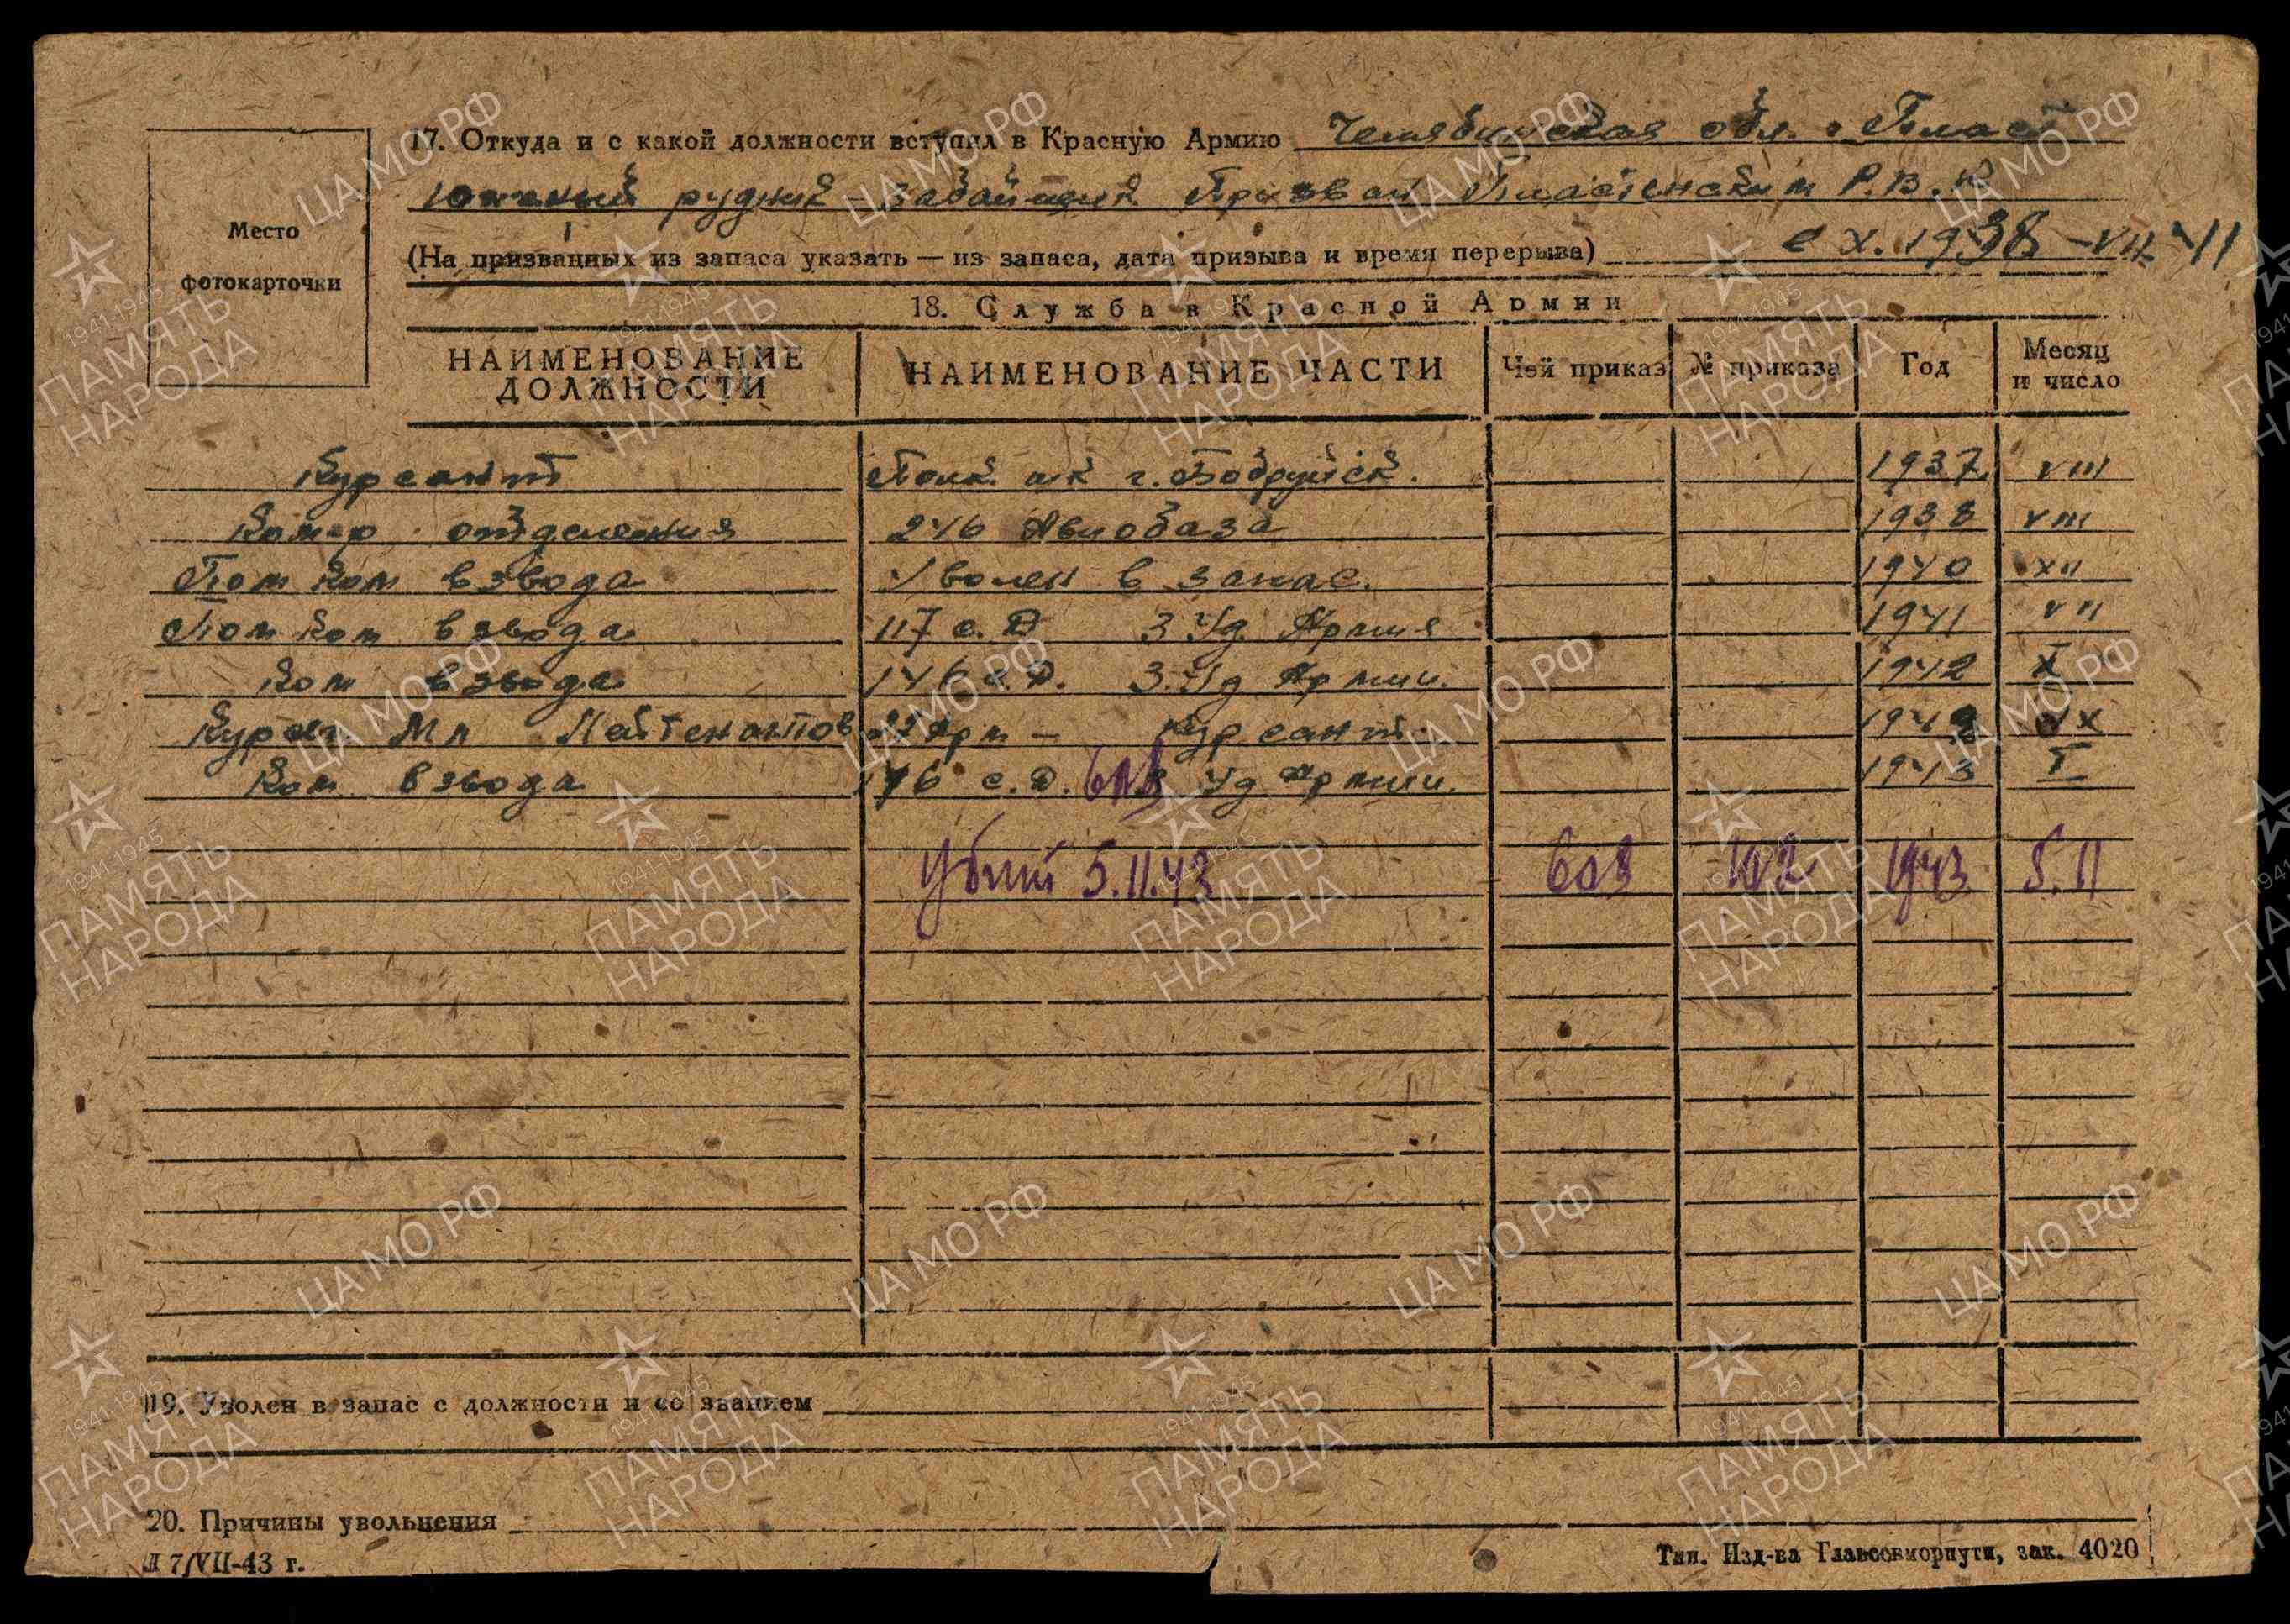 17. Откуда и с какой должности вступил в Красную Армию Челябинская обл. г. Пласт
Южный рудник - забойщик Призван Пластенским Р.В.К
(На призванных из запаса указать — из запаса, дата призыва и время перерыва) с X. 1938 - VII-41
Место
фотокарточки
18. Служба в Красной Армии
НАИМЕНОВАНИЕ ДОЛЖНОСТИ НАИМЕНОВАНИЕ ЧАСТИ Чей приказ № приказа Год Месяц и число
Курсант г. Бобруйск. 1937 VIII
Ком-р отделения 246 Авиобаза 1938 VIII
Пом Ком взвода Уволен в запас. 1940 XII
Пом Ком взвода 117 с. Д 3 Уд Армия 1941 VII
Ком взвода 146 с. Д. 3. Уд Армии. 1942 X
Мл Лейтенантов 22 Арм - Курсант. 1942 IX
Ком взвода с. Д. Уд Армии. 1943 I
Убит 5.11.43 608 102 1943 5.11
19. Уволен в запас с должности и со званием
20. Причины увольнения
Л 7/VII-43 г.
Тип. Изд-ва Главсевморпути, зак. 4020
ЦА МО РФ
1941-1945
ПАМЯТЬ
НАРОДА